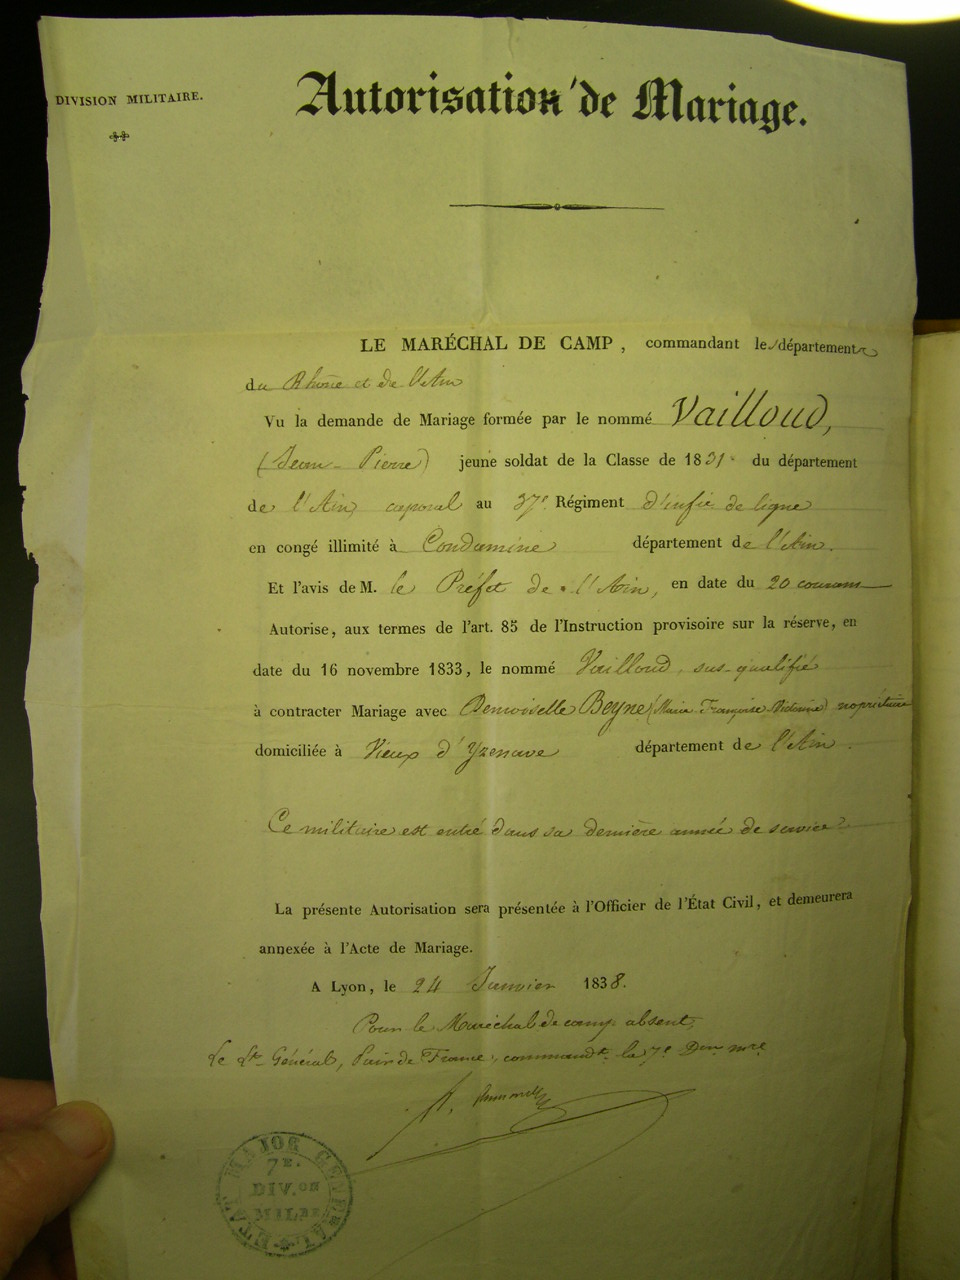 DIVISION MILITAIRE.
Autorisation de Mariage.
LE MARÉCHAL DE CAMP, commandant les départements
du Rhône et de l'Ain
Vu la demande de Mariage formée par le nommé Vailloud,
(Jean-Pierre) jeune soldat de la Classe de 1831 du département
de l'Ain, caporal au 37e Régiment d'infie de ligne
en congé illimité à Condamine département de l'Ain.
Et l'avis de M. le Préfet de l'Ain, en date du 20 courant
Autorise, aux termes de l'art. 85 de l'Instruction provisoire sur la réserve, en
date du 16 novembre 1833, le nommé Vailloud, sus-qualifié
à contracter Mariage avec Demoiselle Beyne (Marie Françoise Victorine)
domiciliée à Vieux d'Yzenave département de l'Ain.
Ce militaire est entré dans sa dernière année de service
La présente Autorisation sera présentée à l'Officier de l'État Civil, et demeurera
annexée à l'Acte de Mariage.
A Lyon, le 24 Janvier 1838.
Pour le Maréchal de camp absent,
Le Lt Général, Pair de France, commandt la 7e Don mre
ETAT MAJOR GENERAL
7E.
DIV.ON
MILRE